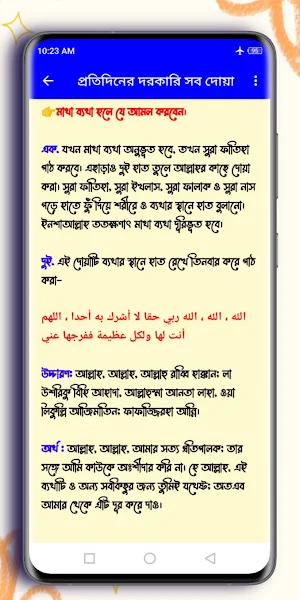 10:23 AM
প্রতিদিনের দরকারি সব দোয়া
👉মাথা ব্যথা হলে যে আমল করবেন।
এক. যখন মাথা ব্যথা অনুভূত হবে, তখন সুরা ফাতিহা
পাঠ করবে। এছাড়াও দুই হাত তুলে আল্লাহর কাছে দোয়া
করা। সুরা ফাতিহা, সুরা ইখলাস, সুরা ফালাক ও সুরা নাস
পড়ে হাতে ফুঁ দিয়ে শরীরে ও ব্যথার স্থানে হাত বুলানো।
ইনশাআল্লাহ ততক্ষণাৎ মাথা ব্যথা দূরিভূত হবে।
দুই. এই দোয়াটি ব্যথার স্থানে হাত রেখে তিনবার করে পাঠ
করা-
الله ، الله ، الله ربي حقا لا أشرك به أحدا ، اللهم
أنت لها ولكل عظيمة ففرجها عني
উচ্চারণ: আল্লাহ, আল্লাহ, আল্লাহু রাব্বি হাক্কান; লা
উশরিকু বিহি আহাদা, আল্লাহুম্মা আনতা লাহা, ওয়া
লিকুল্লি আজিমাতিন; ফাফাররিজহা আন্নি।
অর্থ : আল্লাহ, আল্লাহ, আমার সত্য প্রতিপালক; তার
সঙ্গে আমি কাউকে অংশীদার করি না। হে আল্লাহ, এই
ব্যথাটি ও অন্য সবকিছুর জন্য তুমিই যথেষ্ট; অতএব
আমার থেকে এটি দূর করে দাও।